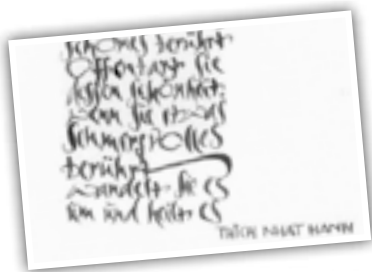 schönes berührt
offenbart sie
dessen schönheit.
wenn sie etwas
schmerzvolles
berührt
wandelt sie es
um und heilt es
THICH NHAT HANH